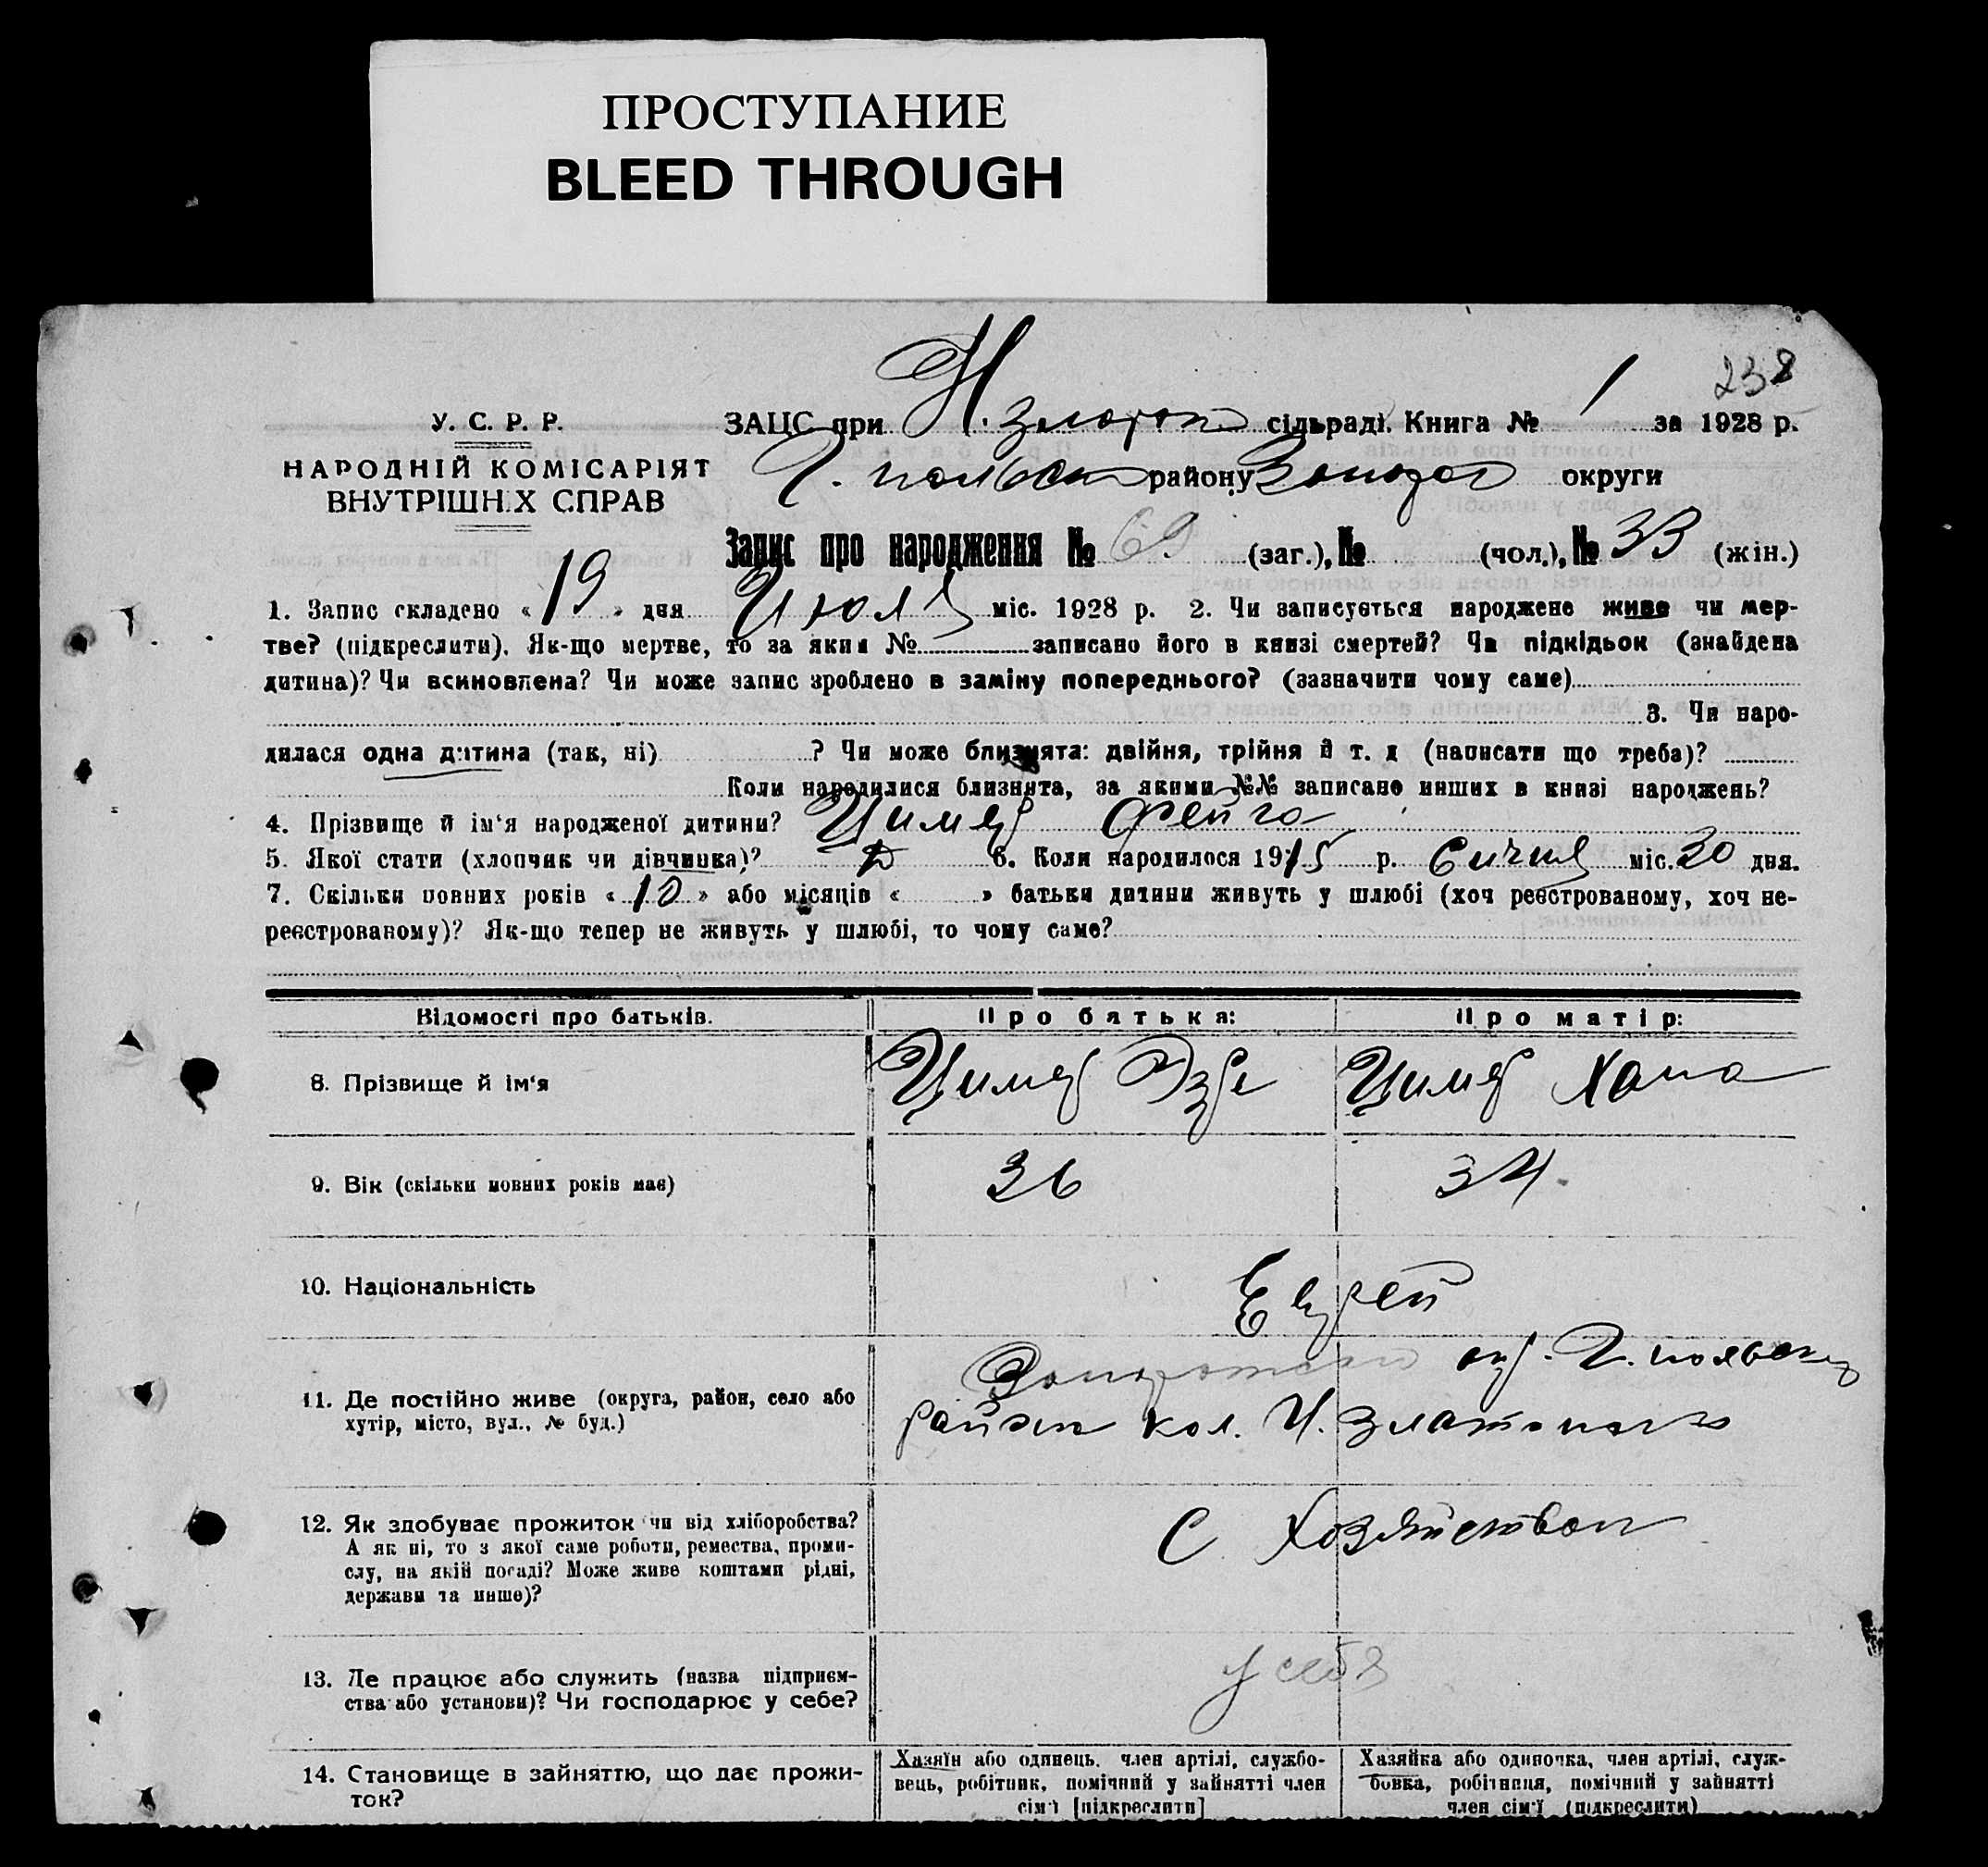 ПРОСТУПАНИЕ
BLEED THROUGH
238
У. С. Р. Р.
НАРОДНІЙ КОМІСАРІЯТ
ВНУТРІШНІХ СПРАВ
ЗАЦС при Н. Златоп сільраді. Книга № 1 за 1928 р.
Г. польск району Запорож округи
Запис про народження № 69 (заг.), № (чол.), № 33 (жін.)
1. Запис складено « 19 » дня Июля міс. 1928 р. 2. Чи записується народжене живе чи мер-
тве? (підкреслити). Як-що мертве, то за яким № записано його в книзі смертей? Чи підкідьок (знайдена
дитина)? Чи всиновлена? Чи може запис зроблено в заміну попереднього? (зазначити чому саме)
3. Чи наро-
дилася одна дитина (так, ні) ? Чи може близнята: двійня, трійня й т. д (написати що треба)?
Коли народилися близнята, за якими №№ записано инших в книзі народжень?
4. Прізвище й ім‘я народженої дитини? Цимер Фейга
5. Якої стати (хлопчик чи дівчинка)? 6. Коли народилося 1915 р. Сичня міс. 30 дня.
7. Скільки повних років « 10 » або місяців « » батьки дитини живуть у шлюбі (хоч реєстрованому, хоч не-
реєстрованому)? Як-що тепер не живуть у шлюбі, то чому саме?
Відомості про батьків. Про батька: Про матір:
8. Прізвище й ім‘я Цимер Эзре Цимер Хана
9. Вік (скільки повних років має) 36 34.
10. Національність Еврей
11. Де постійно живе (округа, район, село або
хутір, місто, вул., № буд.)
Запорожской окр. Г. польский
район кол. Н. Златополь
12. Як здобуває прожиток чи від хліборобства?
А як ні, то з якої саме роботи, ремества, проми-
слу, на якій посаді? Може живе коштами рідні,
держави та инше)?
С Хозяйством
13. Де працює або служить (назва підприєм-
ства або установи)? Чи господарює у себе?
у себя
14. Становище в зайняттю, що дає прожи-
ток?
Хазяїн або одинець, член артілі, службо-
вець, робітник, помічний у зайнятті член
сім‘ї [підкреслити]
Хазяйка або одиночка, член артілі, служ-
бовка, робітниця, помічний у зайнятті
член сім‘ї (підкреслити)